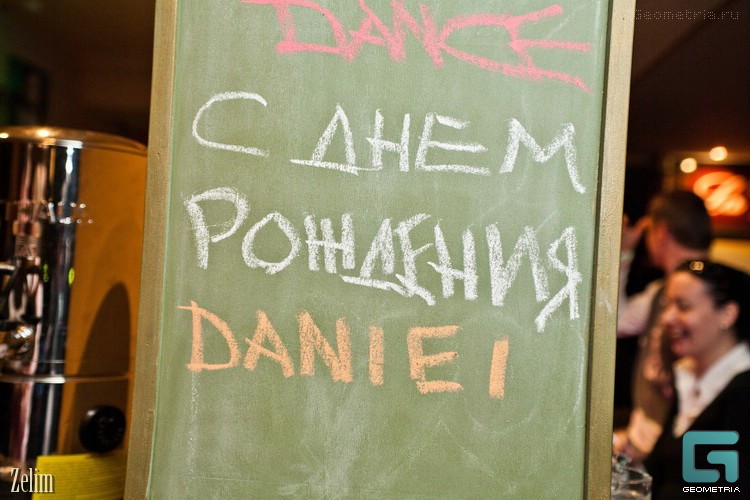 Geometria.ru
DANCE
С ДНЕМ
РОЖДЕНИЯ
DANIEI
Zelim
G
GEOMETRIA